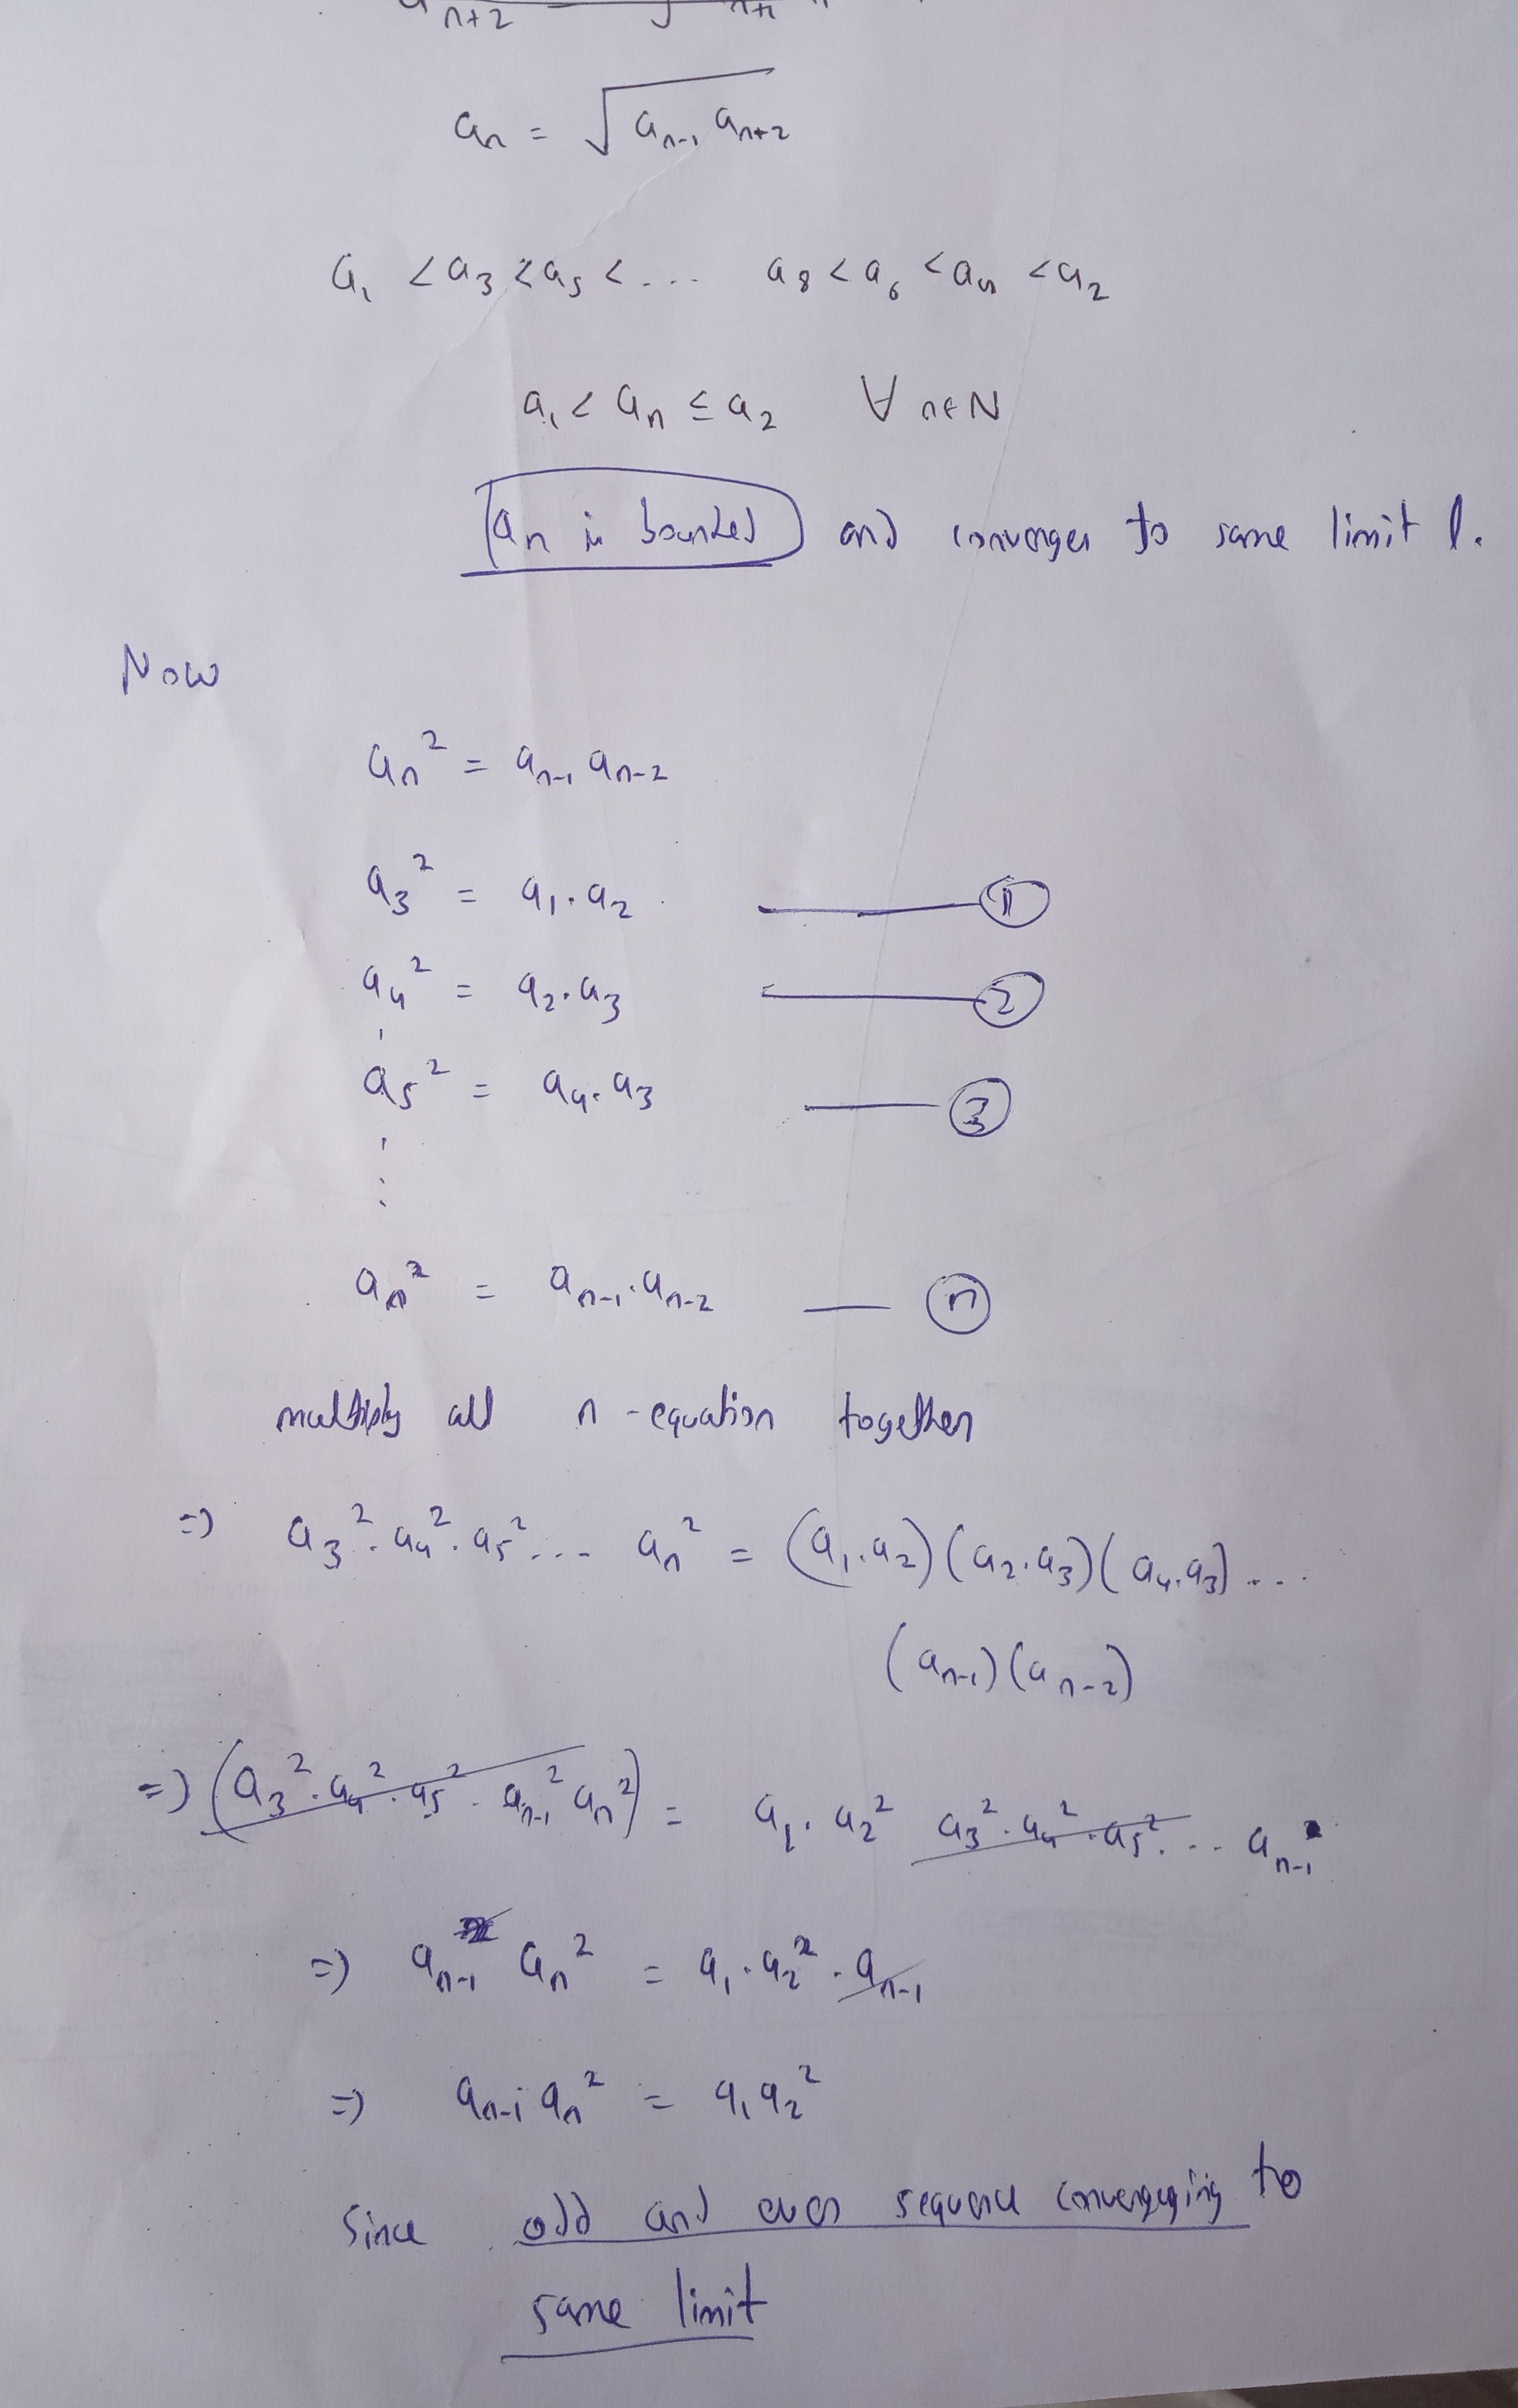 n+2
aₙ = √(aₙ₋₁ aₙ₊₂)
a₁ < a₃ < a₅ < ... a₈ < a₆ < a₄ < a₂
a₁ < aₙ ≤ a₂ ∀ n∈N
aₙ is bounded and converges to same limit l.
Now
aₙ² = aₙ₋₁ aₙ₋₂
a₃² = a₁.a₂ —— ①
a₄² = a₂.a₃ —— ②
a₅² = a₄.a₃ —— ③
⋮
aₙ² = aₙ₋₁.aₙ₋₂ — ⓝ
multiply all n-equation together
=> a₃².a₄².a₅²... aₙ² = (a₁.a₂)(a₂.a₃)(a₄.a₃)...
(aₙ₋₁)(aₙ₋₂)
=> (a₃².a₄².a₅² - aₙ₋₁² aₙ²) = a₁.a₂² a₃².a₄².a₅²... aₙ₋₁
=> aₙ₋₁ aₙ² = a₁.a₂².aₙ₋₁
=> aₙ₋₁ aₙ² = a₁a₂²
Since odd and even sequence converging to
same limit